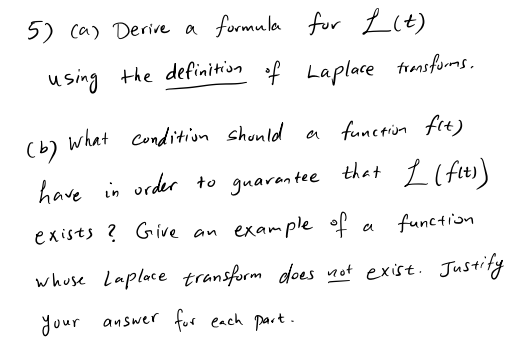 5) (a) Derive a formula for ℒ(t)
using the definition of Laplace transforms.
(b) What condition should a function f(t)
have in order to guarantee that ℒ(f(t))
exists? Give an example of a function
whose Laplace transform does not exist. Justify
your answer for each part.